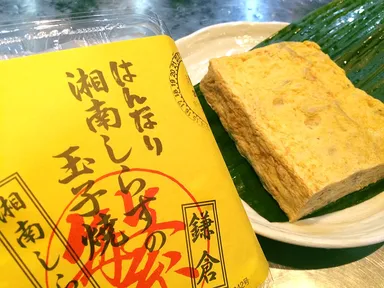 はんなり
湘南しらすの
玉子焼
鎌倉
湘南しら